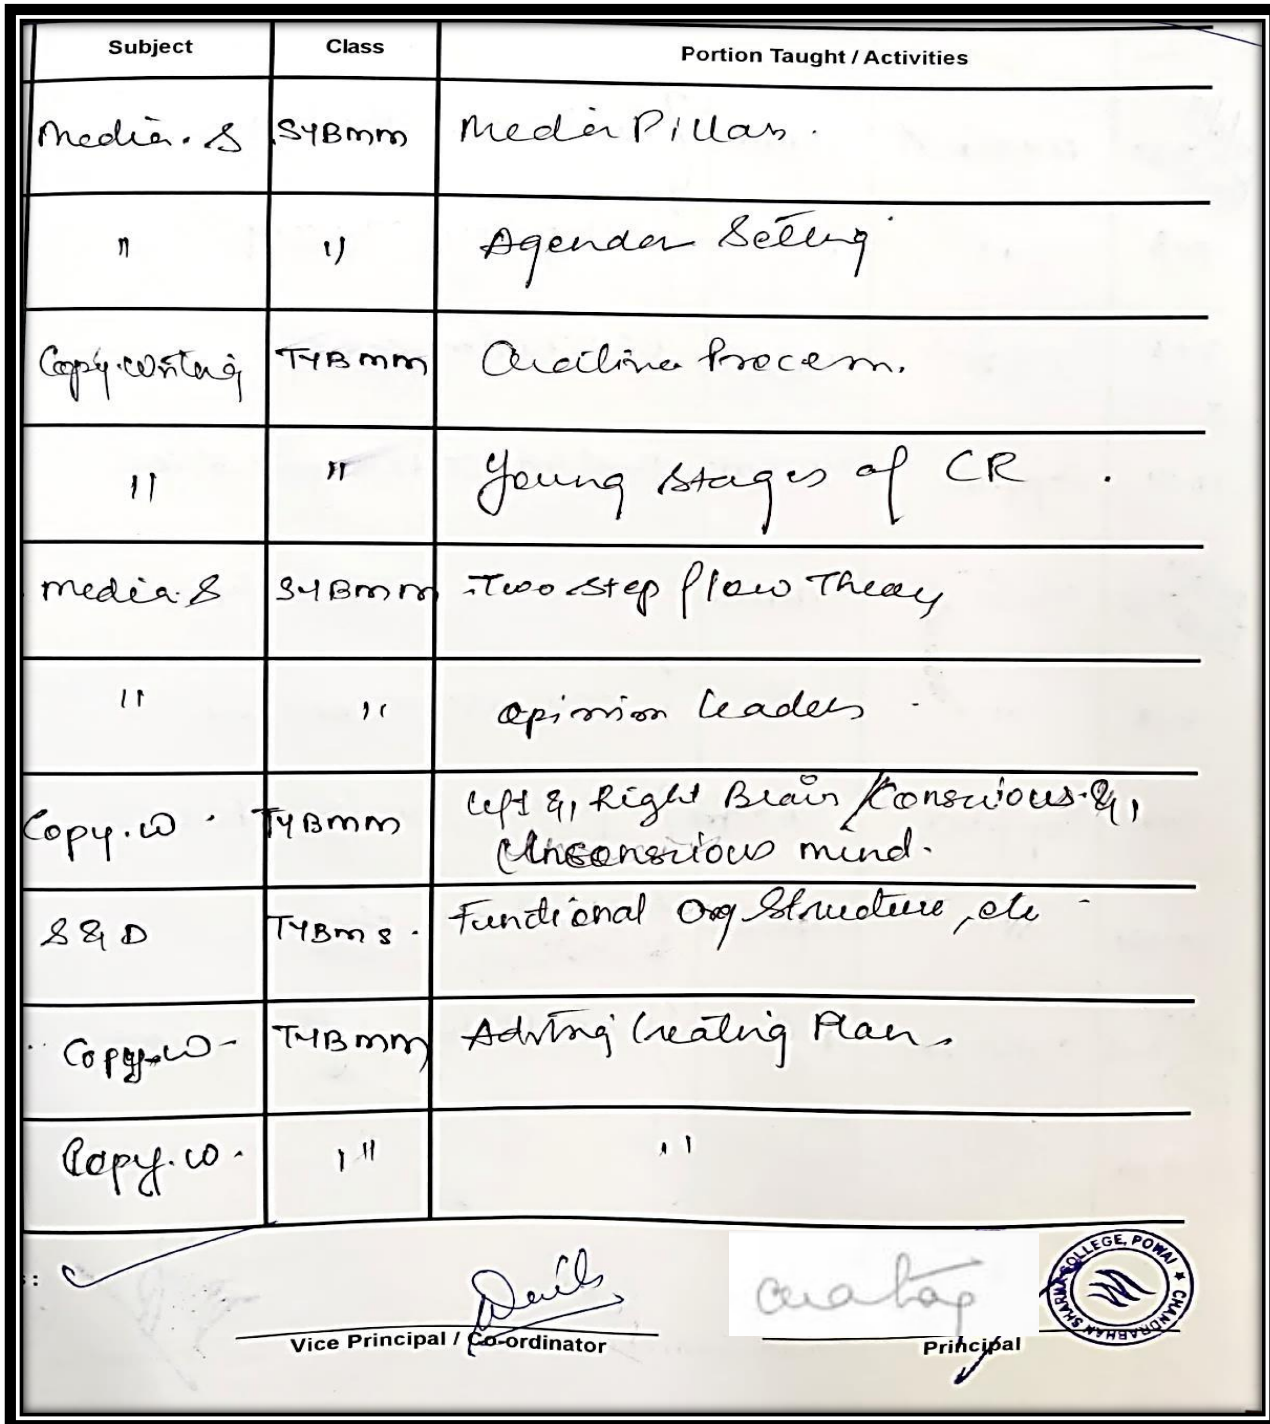 Subject Class Portion Taught / Activities
Media. S SYBMM Media Pillars.
" " Agenda Setting
Copy.writing TYBMM Creative Process.
" " Young stages of CR.
Media. S SYBMM Two step flow Theory
" " opinion leaders
Copy.w. TYBMM Left &, Right Brain / Conscious &,
Unconscious mind.
S & D TYBMS. Functional Org Structure, etc
Copy.w- TYBMM Advtng Creating Plan.
Copy.w. " "
Vice Principal / Co-ordinator
Principal
CHANDRABHAN SHARMA COLLEGE, POWAI